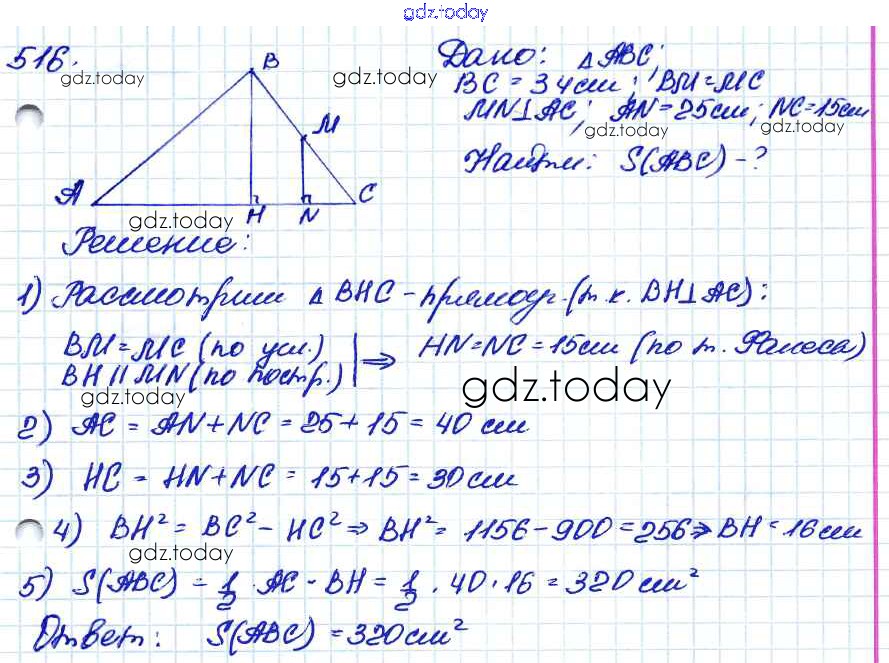 gdz.today
516.
B
M
A
H
N
C
gdz.today
Дано: △ABC;
gdz.today
BC = 34см; BM = MC
MN⊥AC; AN = 25см; NC = 15см
gdz.today
gdz.today
Найти: S(ABC) - ?
gdz.today
Решение:
1) Рассмотрим △ BHC - прямоуг. (т.к. BH⊥AC):
BM = MC (по усл.)
BH || MN (по постр.) | ⇒ HN = NC = 15см (по т. Фалеса)
gdz.today
gdz.today
2) AC = AN + NC = 25 + 15 = 40 см
3) HC = HN + NC = 15 + 15 = 30 см
4) BH² = BC² - HC² ⇒ BH² = 1156 - 900 = 256 ⇒ BH = 16 см
gdz.today
5) S(ABC) = 1/2 · AC · BH = 1/2 · 40 · 16 = 320 см²
gdz.today
Ответ: S(ABC) = 320 см²